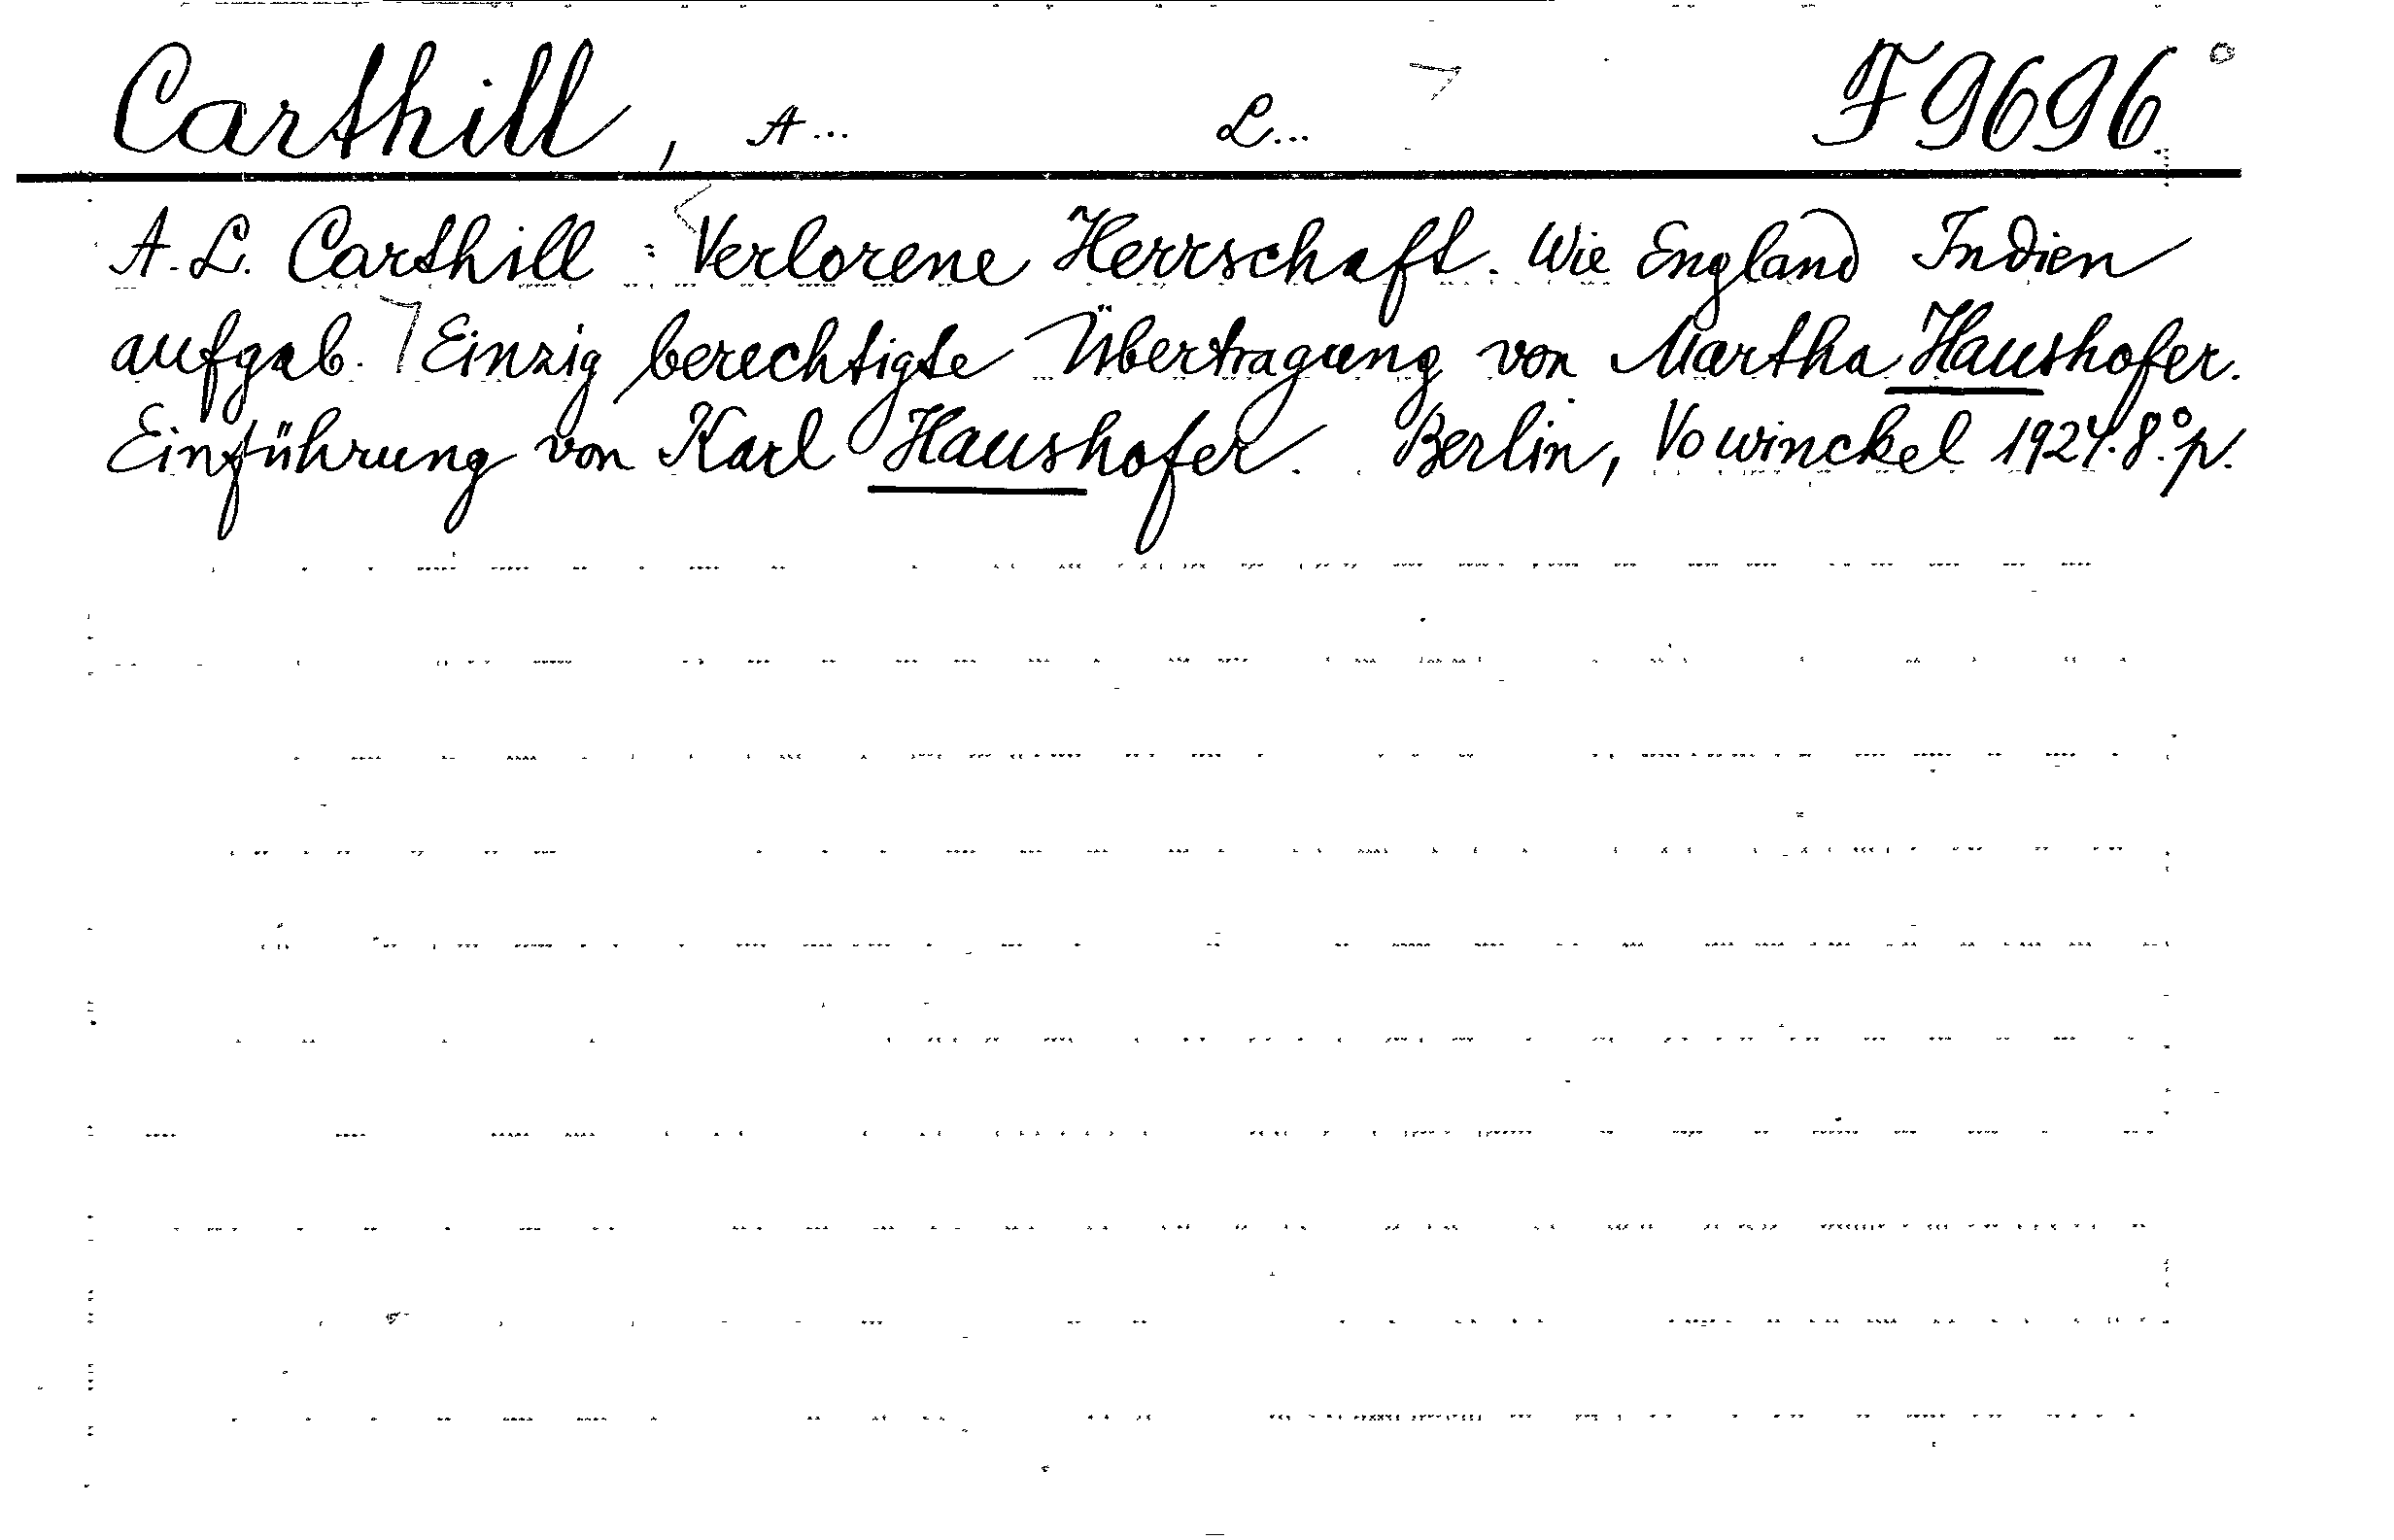 Carthill, A... L... F 9696
A. L. Carthill : Verlorene Herrschaft. Wie England Indien
aufgab. Einzig berechtigte Übertragung von Martha Haushofer.
Einführung von Karl Haushofer. Berlin, Vowinckel 1924. 8° p.